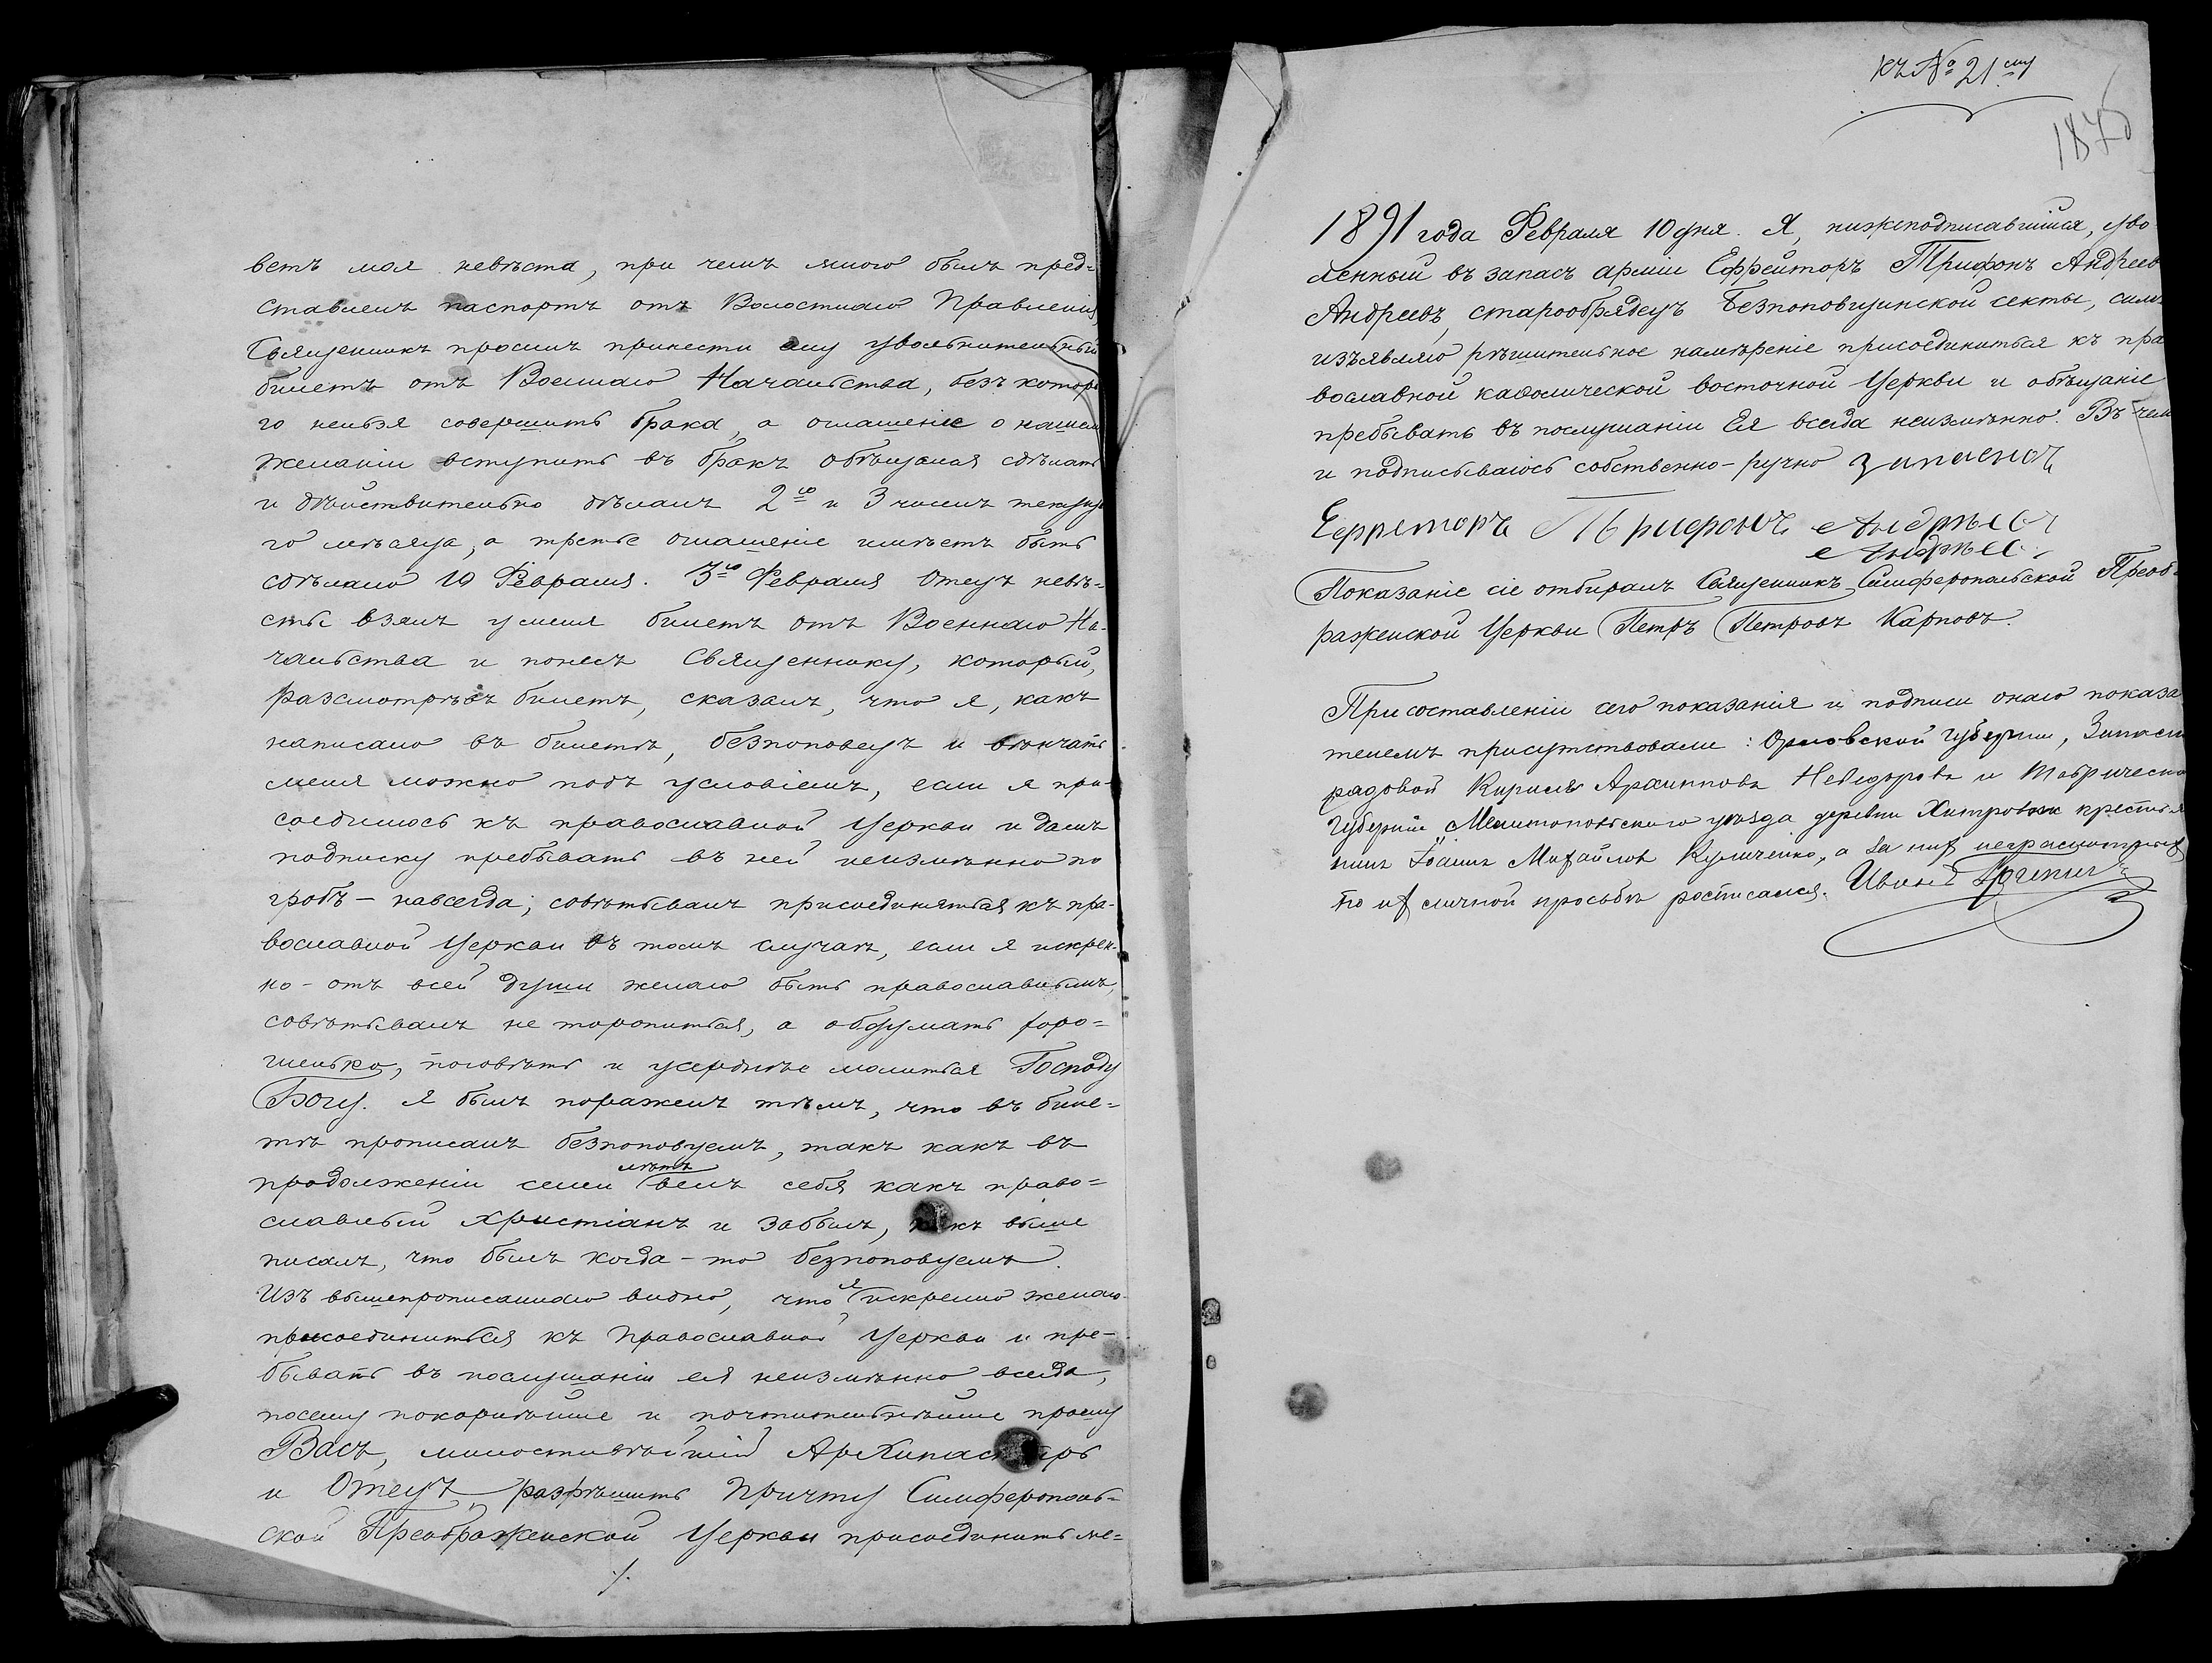 ветъ моя невѣста, при чемъ мною былъ пред=
ставленъ паспортъ отъ Волостнаго Правленія,
Священникъ просилъ принести ему увольнительный
билетъ отъ Военнаго Начальства, безъ которо
го нельзя совершить брака, а оглашеніе о нашемъ
желаніи вступить въ бракъ обѣщался сдѣлать
и дѣйствительно дѣлалъ 2го и 3 чиселъ текуща
го мѣсяца, а третье оглашеніе имѣетъ быть
сдѣлано 10 Февраля. 3го Февраля Отецъ невѣ=
сты взялъ у меня билетъ отъ Военнаго На-
чальства и понесъ Священнику, который,
разсмотрѣвъ билетъ, сказалъ, что я, какъ
написано въ билетѣ, безпоповецъ и вѣнчать
меня можно подъ условіемъ, если я при-
соединюсь къ православной Церкви и дамъ
подписку пребывать въ ней неизмѣнно по
гробъ – навсегда; совѣтывалъ присоединяться къ пра-
вославной Церкви въ томъ случаѣ, если я искрен-
но – отъ всей души желаю быть православнымъ,
совѣтывалъ не торопиться, а обдумать хоро=
шенько, поговѣть и усерднѣе молиться Господу
Богу. Я былъ пораженъ тѣмъ, что въ биле=
тѣ прописанъ безпоповцемъ, такъ какъ въ
продолженіи семи лѣтъ велъ себя какъ право=
славный христіанъ и забылъ, какъ выше
писалъ, что былъ когда-то безпоповцемъ.
Изъ вышепрописаннаго видно, что я искренно желаю
присоединиться къ Православной Церкви и пре-
бывать въ послушаніи ея неизмѣнно всегда,
посему покорнѣйше и почтительнѣйше прошу
Васъ, милостивѣйшій Архипастырь
и Отецъ, разрѣшить Причту Симферополь=
ской Преображенской Церкви присоединить ме=
./.
къ № 21му
1891 года Февраля 10 дня. Я, нижеподписавшійся, уво
ленный въ запасъ арміи Ефрейторъ Трифонъ Андреев
Андреевъ, старообрядецъ Безпоповщинской секты, симъ
изъявляю рѣшительное намѣреніе присоединиться къ пра
вославной каѳолической восточной Церкви и обѣщаніе
пребывать въ послушаніи Ея всегда неизмѣнно. Въ чем
и подписываюсь собственно-ручно запасной
Ефреторъ Трифонъ Андрѣев
Андрѣев
Показаніе сіе отбиралъ Священникъ Симферопольской Преоб=
раженской Церкви Петръ Петровъ Карповъ.
При составленіи сего показанія и подписи онаго показа
телемъ присутствовали: Орловской губерніи, Запасн
рядовой Кирилъ Архиповъ Неведоровъ и Таврическо
Губерніи Мелитопольского уѣзда деревни Хитровки крестья
нинъ Іоаннъ Михайловъ Куличенко, а за них неграмотных
По их личной просьбѣ росписался. Иванъ